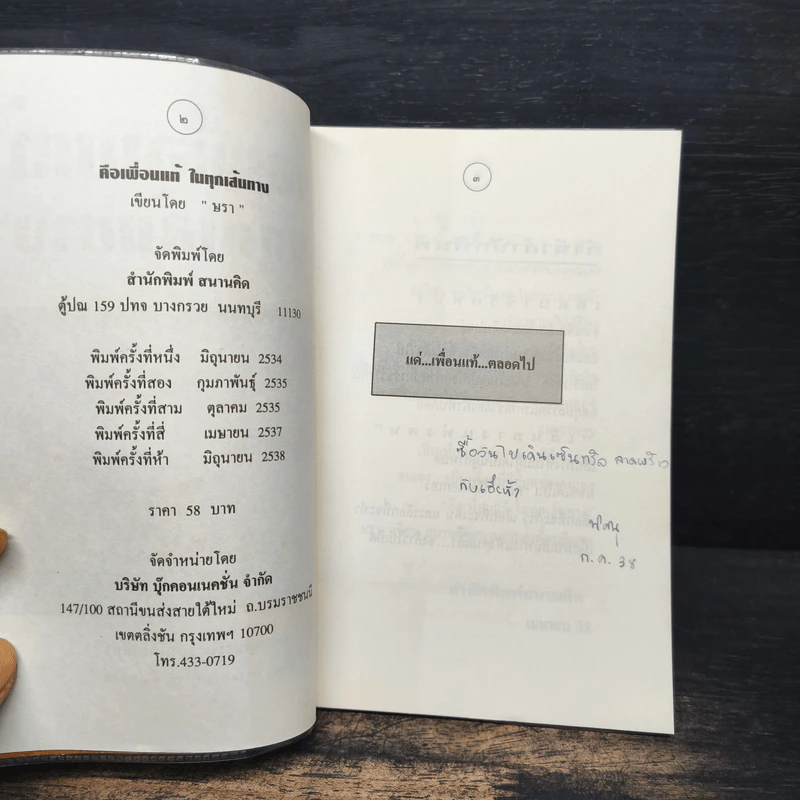 ๒
คือเพื่อนแท้ ในทุกเส้นทาง
เขียนโดย " ษรา "
จัดพิมพ์โดย
สำนักพิมพ์ สนานคิด
ตู้ปณ 159 ปทจ บางกรวย นนทบุรี 11130
พิมพ์ครั้งที่หนึ่ง มิถุนายน 2534
พิมพ์ครั้งที่สอง กุมภาพันธุ์ 2535
พิมพ์ครั้งที่สาม ตุลาคม 2535
พิมพ์ครั้งที่สี่ เมษายน 2537
พิมพ์ครั้งที่ห้า มิถุนายน 2538
ราคา 58 บาท
จัดจำหน่ายโดย
บริษัท บุ๊กคอนเนคชั่น จำกัด
147/100 สถานีขนส่งสายใต้ใหม่ ถ.บรมราชชนนี
เขตตลิ่งชัน กรุงเทพฯ 10700
โทร.433-0719
๓
แด่...เพื่อนแท้...ตลอดไป
ซื้อวันไปเดินเซ็นทรัล ลาดพร้าว
กับเฮี้ยห้า
ก.ค. 38